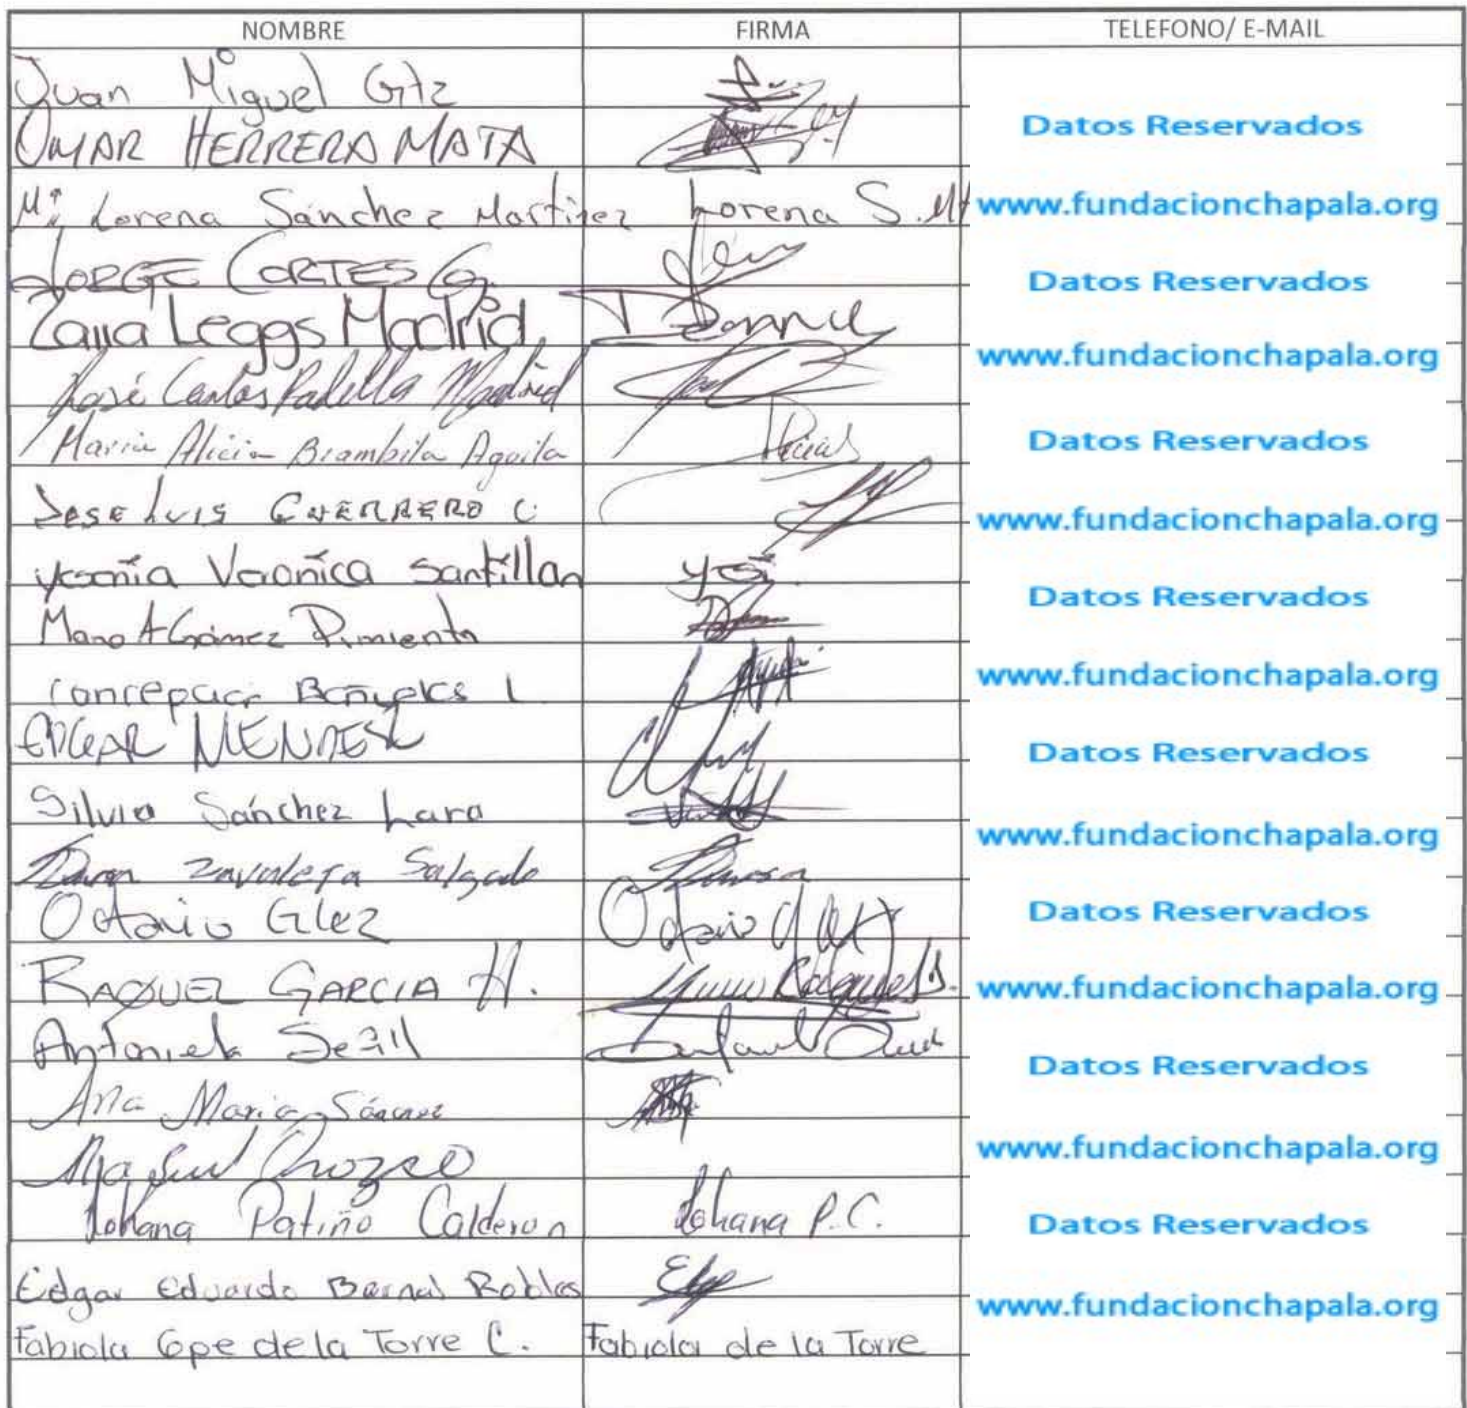 NOMBRE FIRMA TELEFONO/ E-MAIL
Juan Miguel Gtz
OMAR HERRERA MATA
Datos Reservados
Mª Lorena Sánchez Martinez Lorena S. M
www.fundacionchapala.org
JORGE CORTES G.
Datos Reservados
Leggs Madrid
www.fundacionchapala.org
José Carlos Padilla Madrid
Maria Alicia Brambila Aguila
Datos Reservados
JOSE LUIS GUERRERO C.
www.fundacionchapala.org
Veronica Santillan
Datos Reservados
A Gámez Pimienta
www.fundacionchapala.org
EDGAR MENDEZ
Datos Reservados
Silvia Sánchez Lara
www.fundacionchapala.org
Zavaleta Salgado
Octavio Glez Octavio
Datos Reservados
RAQUEL GARCIA H.
www.fundacionchapala.org
Datos Reservados
Ana Maria
www.fundacionchapala.org
Orozco
Johana Patiño Calderon Johana P.C.
Datos Reservados
Edgar Eduardo Bernal Robles
www.fundacionchapala.org
Fabiola de la Torre C. Fabiola de la Torre